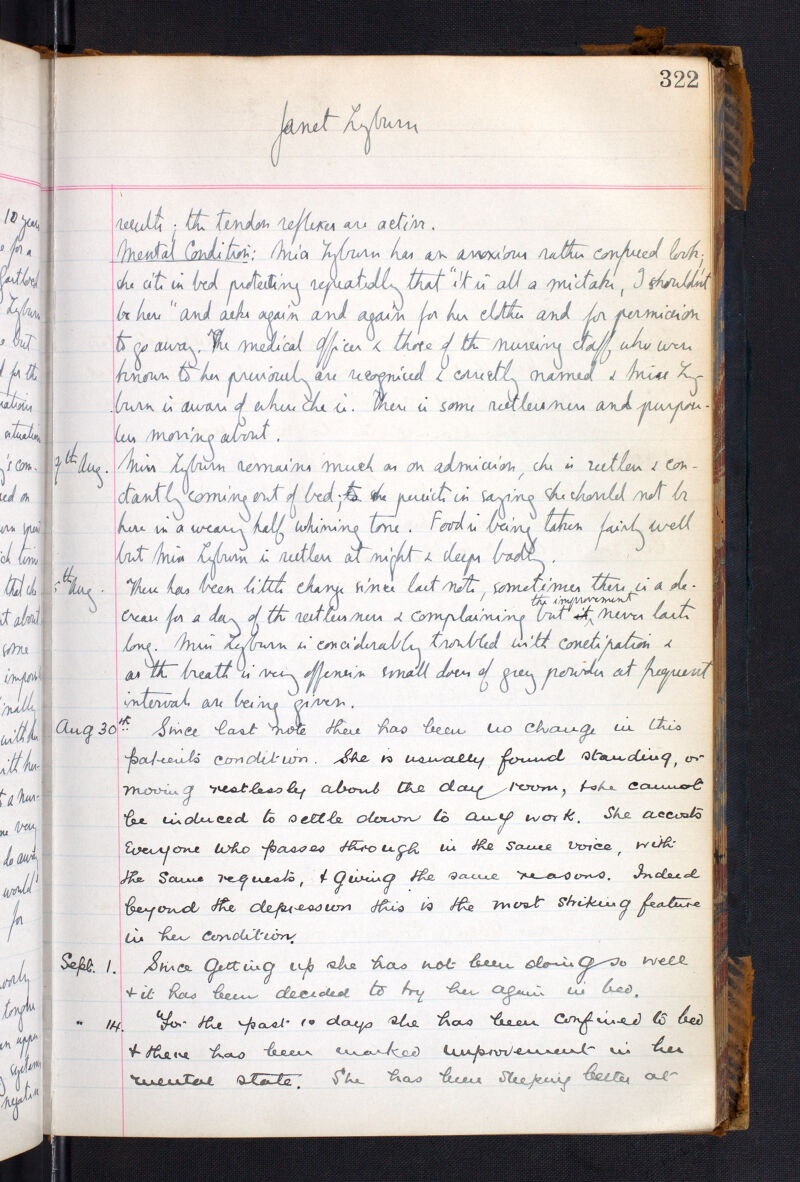 322
Janet Lyburn
results; the tendon reflexes are active.
Mental Condition: Miss Lyburn has an anxious rather confused look;
she sits in bed protesting repeatedly that "it is all a mistake, I shouldn't
be here" and asks again and again for her clothes and for permission
to go away. The medical officer & those of the nursing staff who were
known to her previously are recognised & correctly named & Miss Ly-
burn is aware of where she is. There is some restlessness and purpose-
less moving about.
7th Aug. Miss Lyburn remains much as on admission, she is restless & con-
stantly coming out of bed; she persists in saying she should not be
here in a weary half whining tone. Food is being taken fairly well
but Miss Lyburn is restless at night & sleeps badly.
5th Aug. There has been little change since last note, sometimes there is a de-
crease for a day of the restlessness & complaining but the improvement never lasts
long. Miss Lyburn is considerably troubled with constipation &
as the breath is very offensive small doses of grey powder at frequent
intervals are being given.
Aug 30th. Since last note there has been no change in this
patient's condition. She is usually found standing, or
moving restlessly about the day room, & she cannot
be induced to settle down to any work. She accosts
everyone who passes through in the same voice, with
the same requests, & giving the same reasons. Indeed
beyond the depression this is the most striking feature
in her condition.
Sept. 1. Since getting up she has not been doing so well
& it has been decided to try her again in bed.
" 14. For the past 10 days she has been confined to bed
& there has been marked improvement in her
mental state. She has been sleeping better at